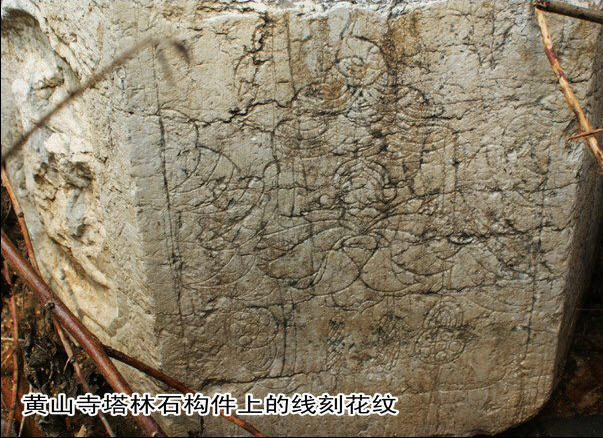 黄山寺塔林石构件上的线刻花纹